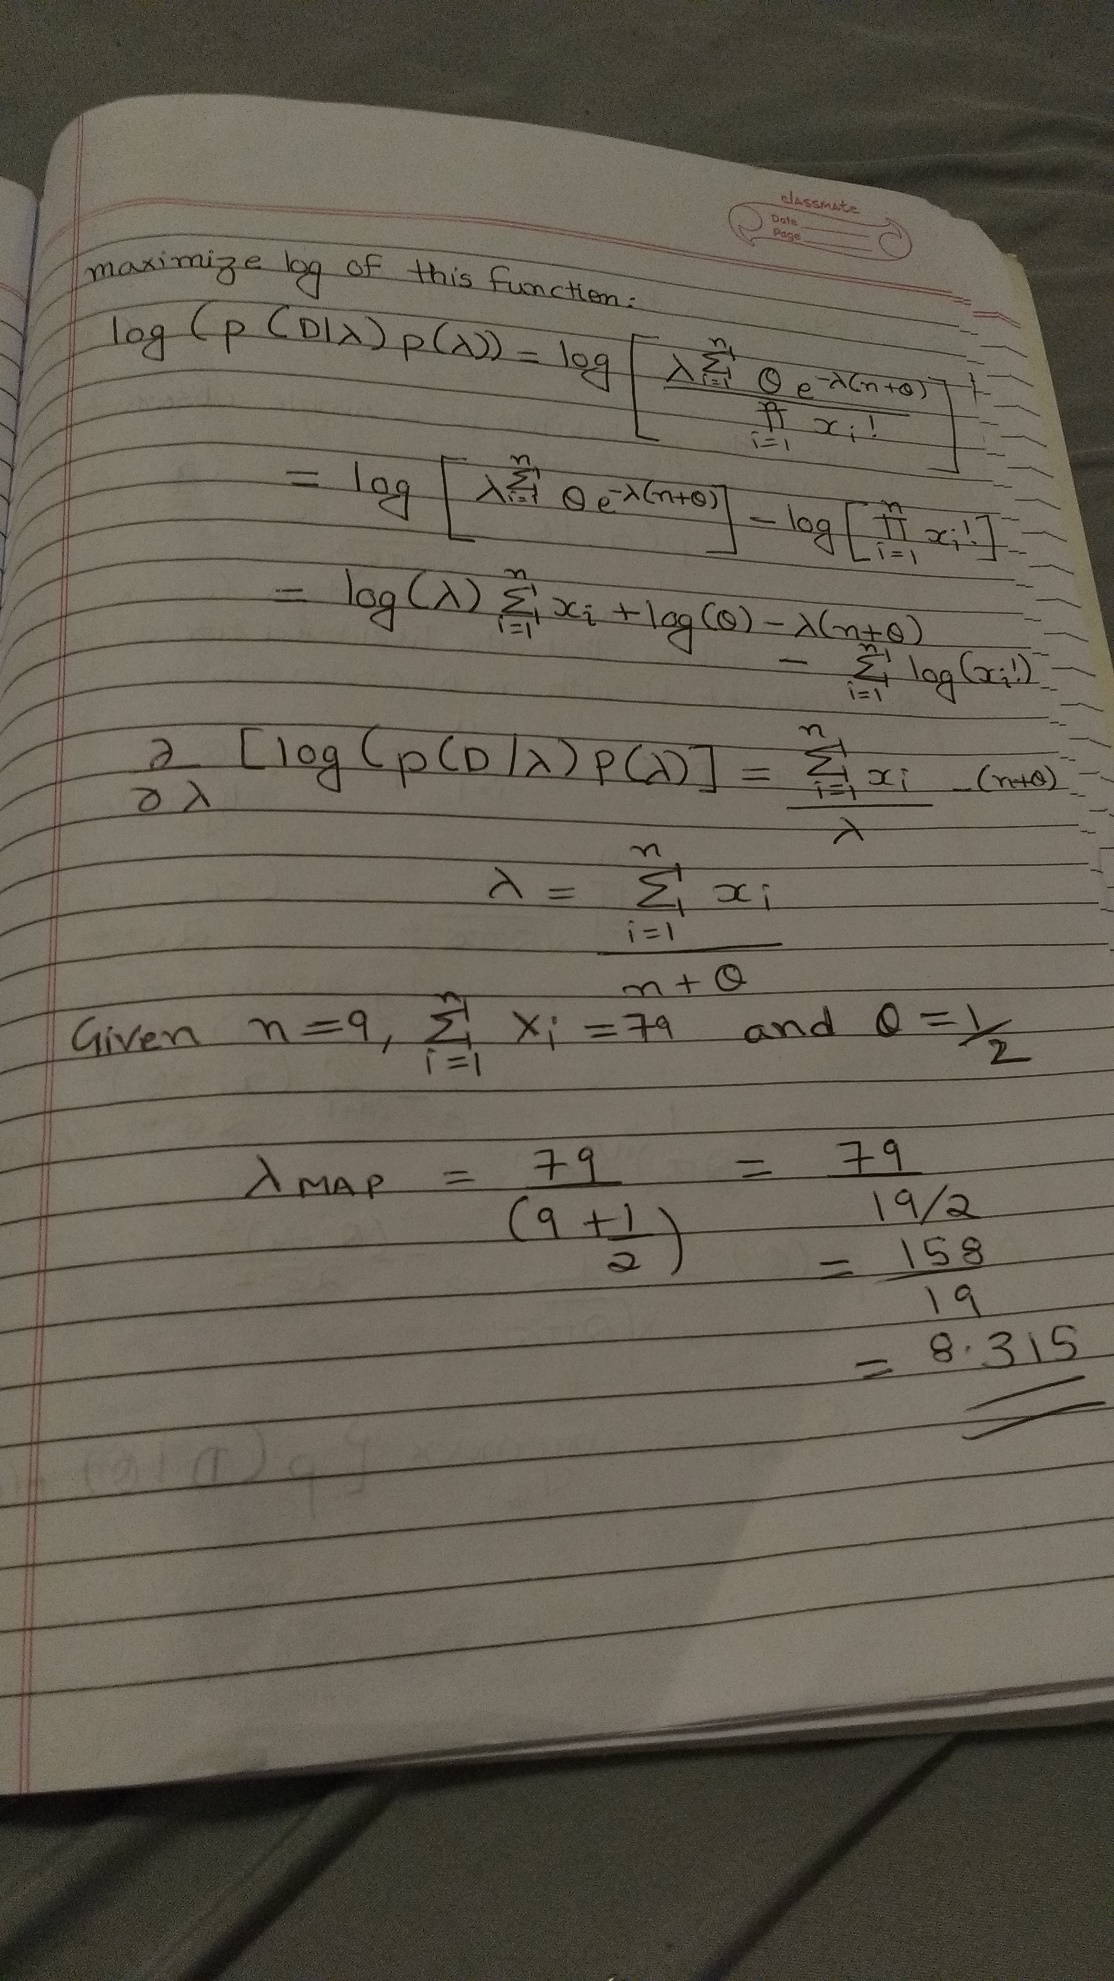 classmate
Date
Page
maximize log of this function:
log (p (D|λ) p(λ)) = log [ λ^{Σ_{i=1}^{n}} θ e^{-λ(n+θ)} / Π_{i=1}^{n} x_i! ]
= log [ λ^{Σ_{i=1}^{n}} θ e^{-λ(n+θ)} ] - log [ Π_{i=1}^{n} x_i! ]
= log(λ) Σ_{i=1}^{n} x_i + log(θ) - λ(n+θ)
- Σ_{i=1}^{n} log(x_i!)
∂/∂λ [log (p(D|λ) P(λ)] = Σ_{i=1}^{n} x_i / λ - (n+θ)
λ = Σ_{i=1}^{n} x_i / n+θ
Given n=9, Σ_{i=1}^{n} x_i = 79 and θ = 1/2
λ MAP = 79 / (9 + 1/2) = 79 / 19/2
= 158 / 19
= 8.315